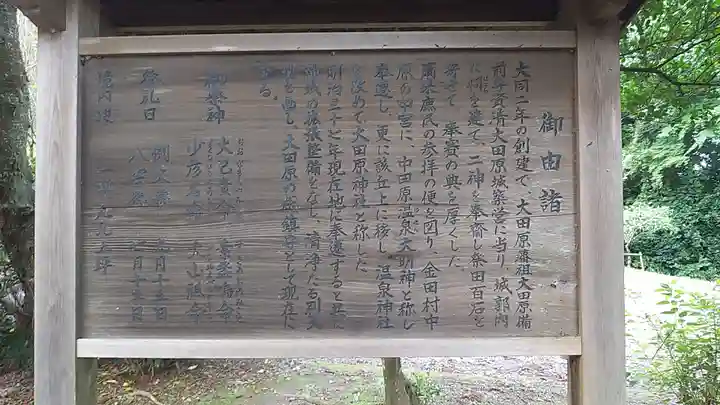 御由諸
大同二年の創建で、大田原藩祖大田原備
前守資清大田原城築営に当り、城郭内
に祠を建て、二神を奉斎し祭田百石を
寄せて、奉賽の典を厚くした。
爾来庶民の参拝の便を図り、金田村中
原の中宮に、中田原温泉大明神と称し
奉遷し、更に該丘上に移し、温泉神社
を改めて大田原神社と称した
明治三十七年現在地に奉遷すると共に
神域の拡張整備をなし、清浄たる
を画し、大田原の総鎮守として現在に
る。
御祭神 大己貴命
少彦名命 大山祇命
祭礼日 例大祭 月十五日
月十五日
境内 坪